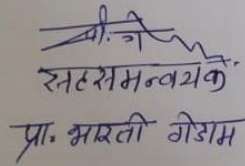 सहसमन्वयक
प्रा. भारती गेडाम